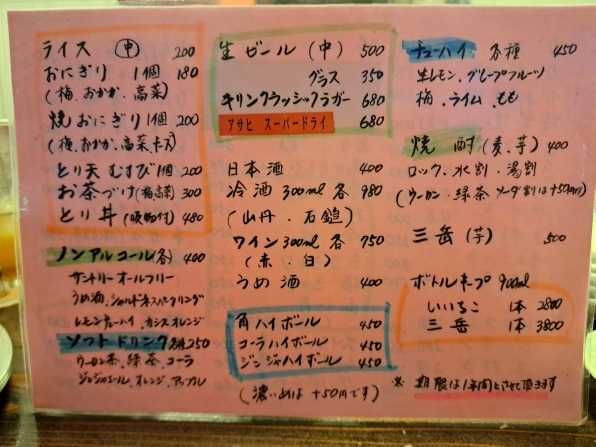 ライス (中) 200
おにぎり 1個 180
(梅、おかか、高菜)
焼おにぎり 1個 200
(梅、おかか、高菜、チーズ)
とり天むすび 1個 200
お茶づけ (梅高菜) 300
とり丼 (吸物付) 480
ノンアルコール 各 400
サントリーオールフリー
うめ酒、シャルドネスパークリング
レモンチューハイ、カシスオレンジ
ソフトドリンク 各種 250
ウーロン茶、緑茶、コーラ
ジンジャエール、オレンジ、アップル
生ビール (中) 500
グラス 350
キリンクラッシックラガー 680
アサヒ スーパードライ 680
日本酒 400
冷酒 300ml 各 980
(山丹・石鎚)
ワイン 300ml 各 750
(赤・白)
うめ酒 400
角ハイボール 450
コーラハイボール 450
ジンジャハイボール 450
(濃いめは +50円です)
チューハイ 各種 450
生レモン、グレープフルーツ
梅、ライム、もも
焼酎 (麦、芋) 400
ロック、水割、湯割
(ウーロン・緑茶・ソーダ割は+50円)
三岳 (芋) 500
ボトルキープ 900ml
いいちこ 1本 2800
三岳 1本 3800
※ 期限は1年間とさせて頂きます